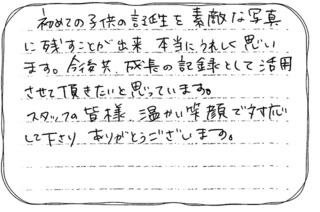 初めての子供の記念を素敵な写真
に残すことが出来、本当にうれしく思い
ます。今後共、成長の記録として活用
させて頂きたいと思っています。
スタッフの皆様、温かい笑顔で対応
して下さり、ありがとうございます。